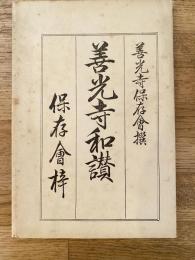 善光寺保存會撰
善光寺和讃
保存會梓